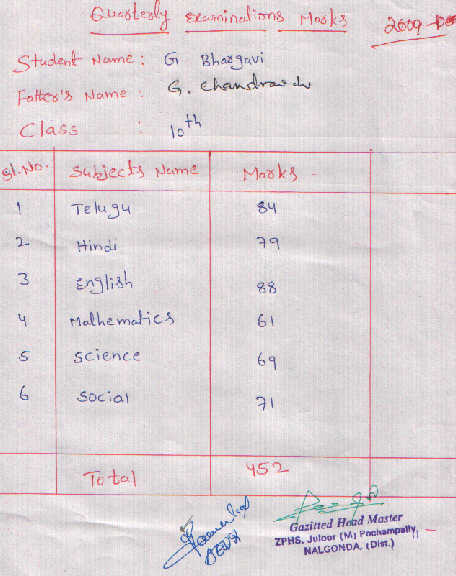 Quarterly Examinations Marks
Student Name : G Bhargavi
Father's Name : G.
Class : 10th
Sl.No. Subjects Name Marks -
1 Telugu 84
2 Hindi 79
3 English 88
4 Mathematics 61
5 Science 69
6 Social 71
Total 452
Gazitted Head Master
ZPHS, Juloor (M) Pochampally,
NALGONDA, (Dist.)